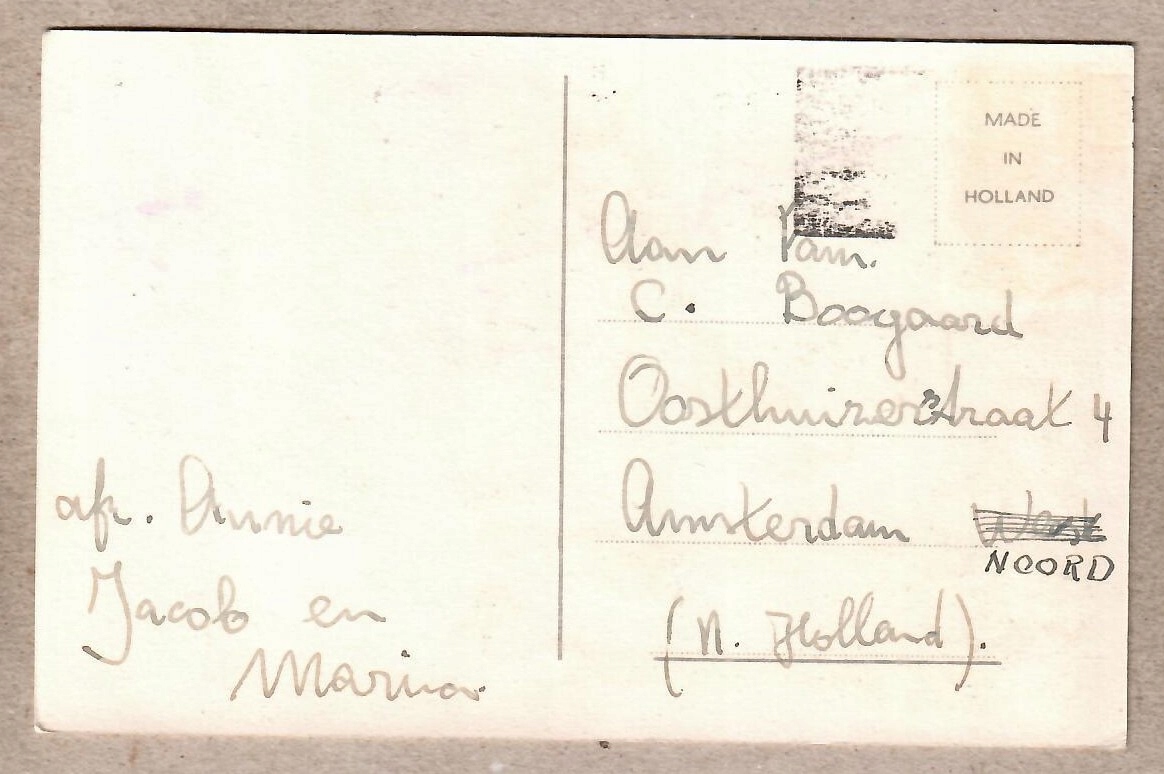 MADE
IN
HOLLAND
Aan Fam.
C. Boogaard
Oosthuizerstraat 4
Amsterdam West
NOORD
(N. Holland).
afz. Annie
Jacob en
Marina